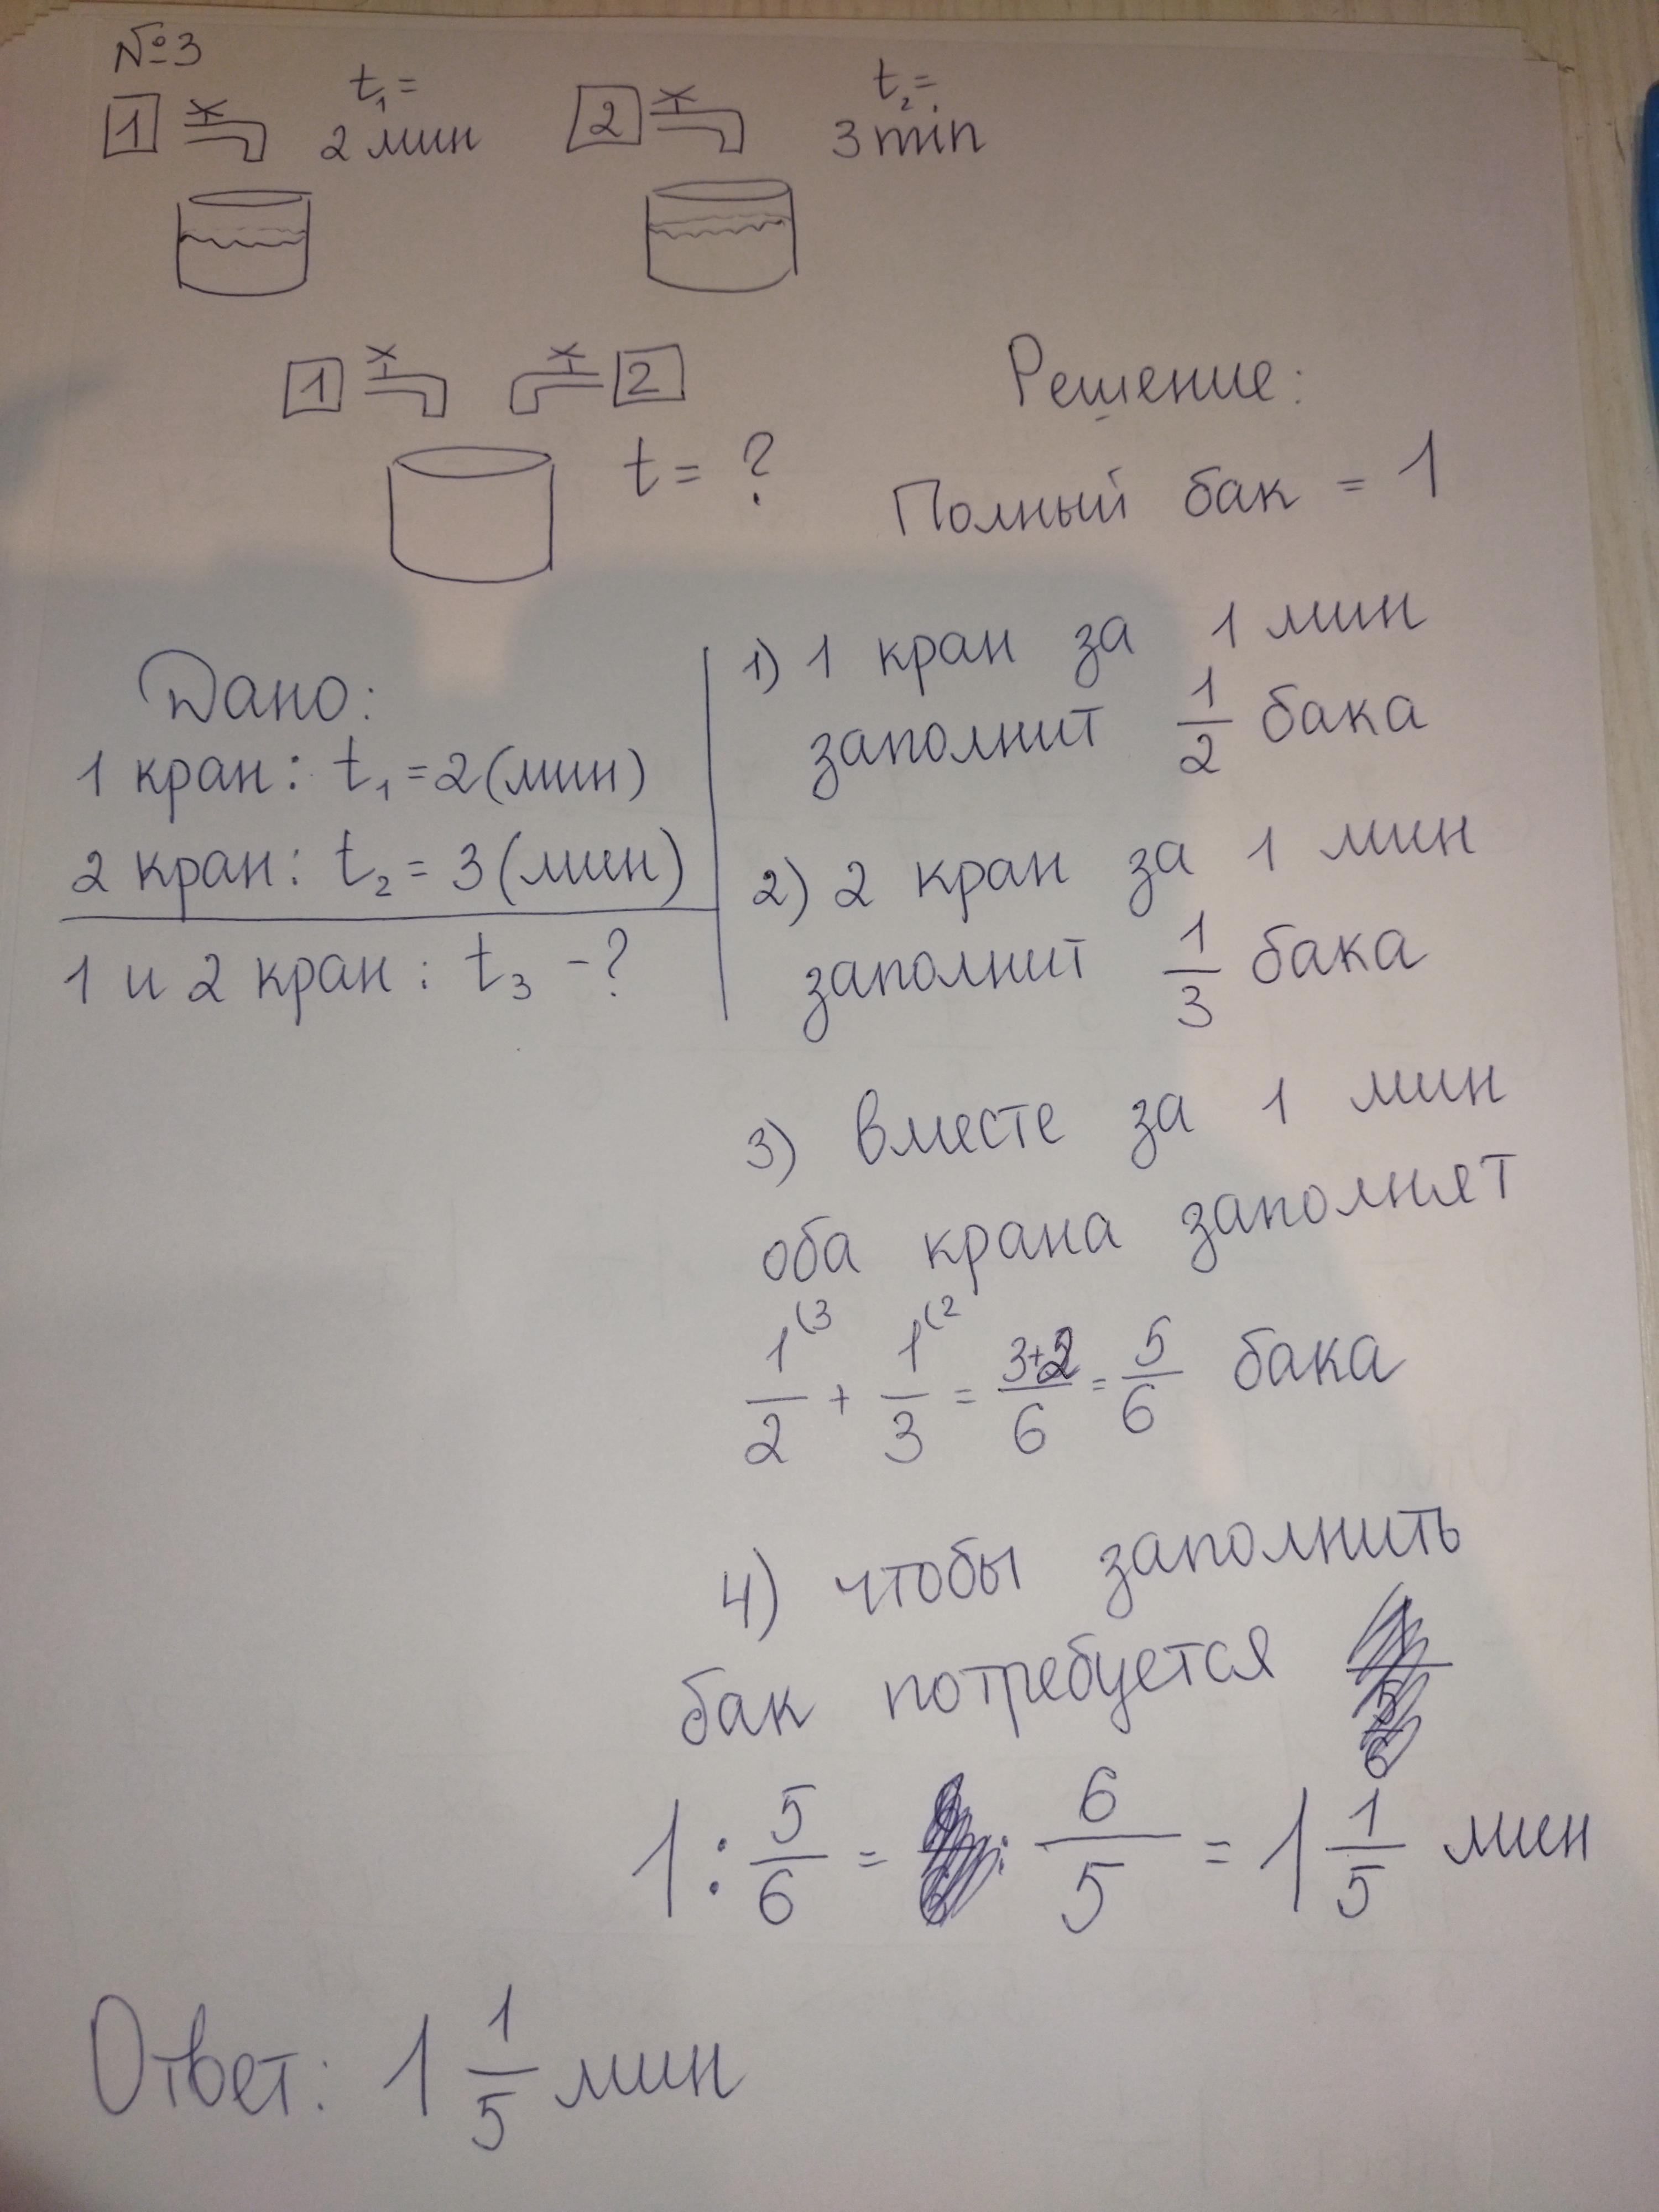 №3
1 t₁= 2 мин
2 t₂= 3 min
1 2
t = ?
Дано:
1 кран: t₁ = 2 (мин)
2 кран: t₂ = 3 (мин)
1 и 2 кран: t₃ - ?
Решение:
Полный бак = 1
1) 1 кран за 1 мин
заполнит 1/2 бака
2) 2 кран за 1 мин
заполнит 1/3 бака
3) вместе за 1 мин
оба крана заполнят
1⁽³/2 + 1⁽²/3 = 3+2/6 = 5/6 бака
4) чтобы заполнить
бак потребуется
1 : 5/6 = 6/5 = 1 1/5 мин
Ответ: 1 1/5 мин